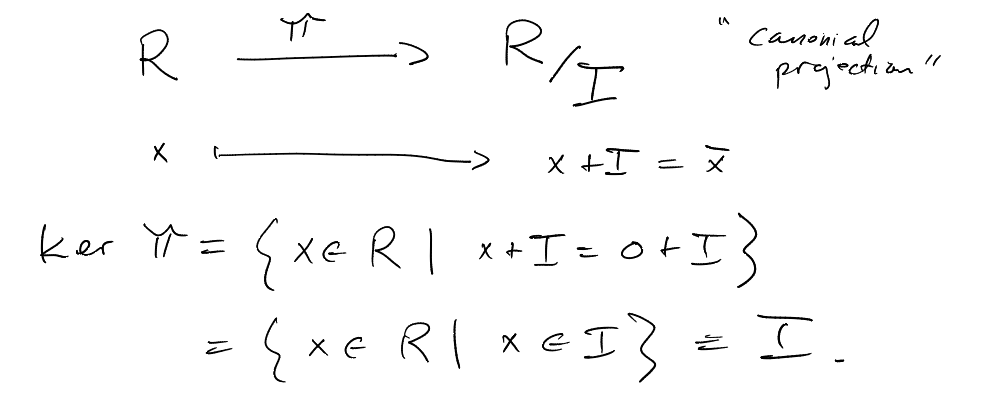 R —π→ R/I "canonial
projection"
x ⟼ x + I = x̄
ker π = { x ∈ R | x + I = 0 + I }
= { x ∈ R | x ∈ I } = I.